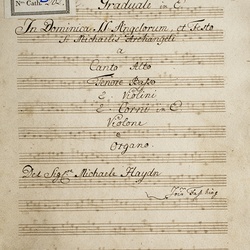 Graduale in C
Nro Cath.
In Dominica II Angelorum, et Festo
St Michaelis Archangeli
a
Canto Alto
Tenore Basso
2 Violini
2 Corni in C
Violone
e
Organo.
Del Sigre Michaele Haydn